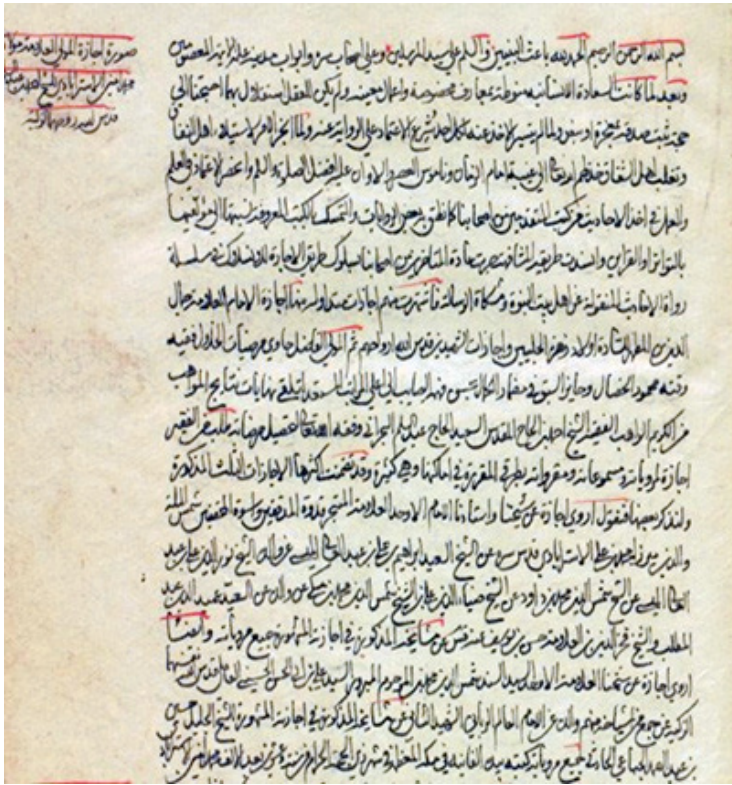 صورة اجازة المولى العلامة مولانا
محمد امين الاسترابادي للشيخ احمد
قدس الله روحهما الزكية
بسم الله الرحمن الرحيم الحمد لله باعث النبيين والسلم على سيد المرسلين وعلى اصحاب سره وابواب مدينة علمه الائمة المعصومين
وبعد لما كانت السعادة الانسانية منوطة بمعارف مخصوصة واعمال معينة ولم يكن للعقل استقلال بهما احتجنا الى
حجة ثبت صدقه بمعجزة او بنص ولما لم يتيسر الاخذ عنه لكل احد شرع الاعتماد على الرواية عنه ولما انجر الامر لاستيلاء اهل النفاق
وتغلب اهل الشقاق خذلهم الله تعالى الى غيبة امام الزمان وناموس العصر والاوان عليه افضل الصلوة والسلم وانحصر الاعتماد في العلم
والعمل في اخذ الاحاديث من كتب المتقدمين من اصحابنا كما نطق به بعض الروايات والتمسك بالكتب المعروفة نسبتها الى مؤلفيها
بالتواتر او القراين وانسدت طريقة المشافهة جرت عادة المتاخرين من اصحابنا بسلوك طريق الاجازة للانسلاك في سلسلة
رواة الاحاديث المنقولة عن اهل بيت النبوة ومشكاة الرسالة فاشتهرت منهم اجازات متداولة منها اجازة الامام العلامة جمال
الدين بن المطهر للسادة اولاد زهرة الحلبيين واجازات الشهيدين قدس الله ارواحهم ثم المولى الفاضل حاوي مرضيات الخلال فقيه
وقته محمود الخصال وحايز السبق في مضمار الكمال فهمه الصايب الى اعلى المراتب المستعد لتلقي نهايات نتايج المواهب
من الكريم الواهب الفقيه الشيخ احمد بن الحاج المقدس السعيد الحاج عبد السلم البحراني وفقه الله تعالى لتحصيل مرضاته طلب من الفقير
اجازة لمروياته ومسموعاته ومقرواته بطرقي المقررة في اماكنها وهي كثيرة وقد تضمنت اكثرها الاجازات الثلث المذكورة
ولنذكر بعضها فنقول اروي اجازة عن شيخنا واستاذنا الامام الاوحد العلامة المتبحر قدوة المدققين واسوة المحققين شمس الملة
والدين ميرزا محمد بن علي الاسترابادي قدس سره عن الشيخ السعيد ابراهيم بن علي بن عبد العالي الميسي عن والده الشيخ نور الدين علي بن عبد
العالي الميسي عن الشيخ شمس الدين محمد بن داود عن الشيخ ضياء الدين علي بن الشيخ شمس الدين محمد بن مكي عن والده عن السيد عميد الدين عبد
المطلب والشيخ فخر الدين بن العلامة حسن بن يوسف عنه عن مشايخه المذكورين في اجازته المشهورة جميع مروياته وايضا
اروي اجازة عن شيخنا العلامة الاوحد السيد السند شمس الدين محمد بن المرحوم المبرور السيد علي بن ابي الحسن الحسيني العاملي قدس الله نفسهما
الزكية عن جمع من مشايخه منهم والده عن الامام العالم الرباني الشهيد الثاني عن مشايخه المذكورين في اجازته المشهورة للشيخ الجليل حسين
بن عبد الصمد الجباعي الحارثي جميع مروياته كتبه بيده الفانية في مكة المعظمة في شهر ذي الحجة الحرام